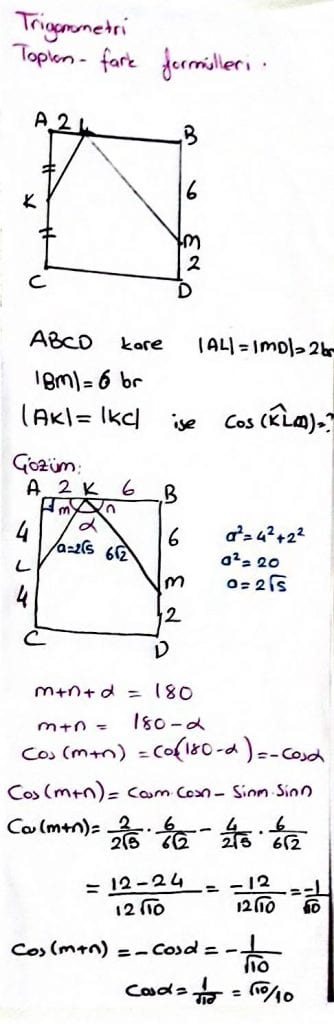 Trigonometri
Toplam - fark formülleri.
A 2 L B
K 6
M
2
C D
ABCD kare |AL|=|MD|=2br
|BM|=6 br
|AK|=|KC| ise Cos(KL̂M)=?
Çözüm:
A 2 K 6 B
4 m α n 6
L a=2√5 6√2 M
4 2
C D
a²=4²+2²
a²=20
a=2√5
m+n+α = 180
m+n = 180-α
Cos(m+n) = Cos(180-α) = -Cosα
Cos(m+n) = Cosm.Cosn - Sinm.Sinn
Cos(m+n) = 2/2√5 . 6/6√2 - 4/2√5 . 6/6√2
= 12-24/12√10 = -12/12√10 = -1/√10
Cos(m+n) = -Cosα = -1/√10
Cosα = 1/√10 = √10/10